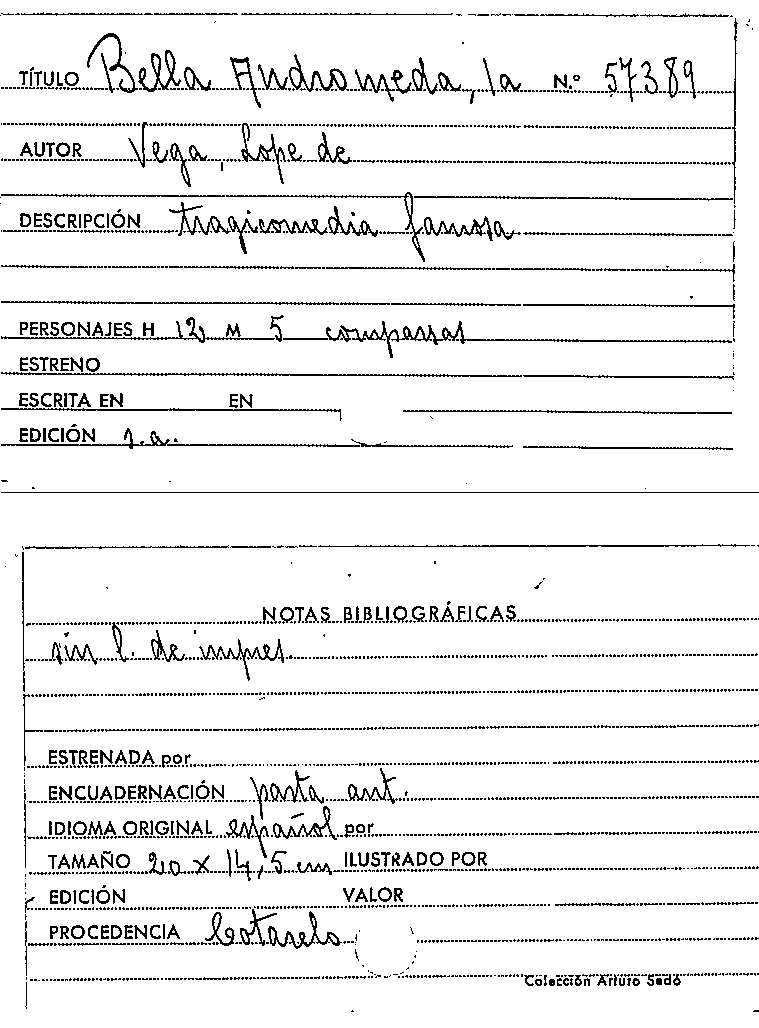 TÍTULO Bella Andromeda, la N.º 57389
AUTOR Vega, Lope de
DESCRIPCIÓN tragicomedia famosa
PERSONAJES H 12 M 5 comparsas
ESTRENO
ESCRITA EN EN
EDICIÓN s.a.
NOTAS BIBLIOGRÁFICAS
sin l. de impres.
ESTRENADA por
ENCUADERNACIÓN pasta ant.
IDIOMA ORIGINAL español por
TAMAÑO 20 x 14,5 cm ILUSTRADO POR
EDICIÓN VALOR
PROCEDENCIA Cotarelo
Colección Arturo Sedó